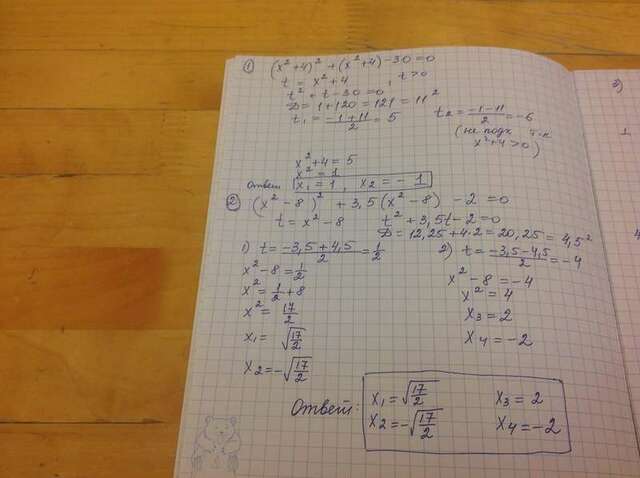 1) (x² + 4)² + (x² + 4) - 30 = 0
t = x² + 4, t > 0
t² + t - 30 = 0
D = 1 + 120 = 121 = 11²
t₁ = (-1 + 11)/2 = 5
t₂ = (-1 - 11)/2 = -6
(не подх. т.к
x² + 4 > 0)
x² + 4 = 5
x² = 1
Ответ: x₁ = 1, x₂ = - 1
2) (x² - 8)² + 3,5(x² - 8) - 2 = 0
t = x² - 8
t² + 3,5t - 2 = 0
D = 12,25 + 4·2 = 20,25 = 4,5²
1) t = (-3,5 + 4,5)/2 = 1/2
x² - 8 = 1/2
x² = 1/2 + 8
x² = 17/2
x₁ = √(17/2)
x₂ = -√(17/2)
2) t = (-3,5 - 4,5)/2 = -4
x² - 8 = -4
x² = 4
x₃ = 2
x₄ = -2
Ответ:
x₁ = √(17/2) x₃ = 2
x₂ = -√(17/2) x₄ = -2
3)